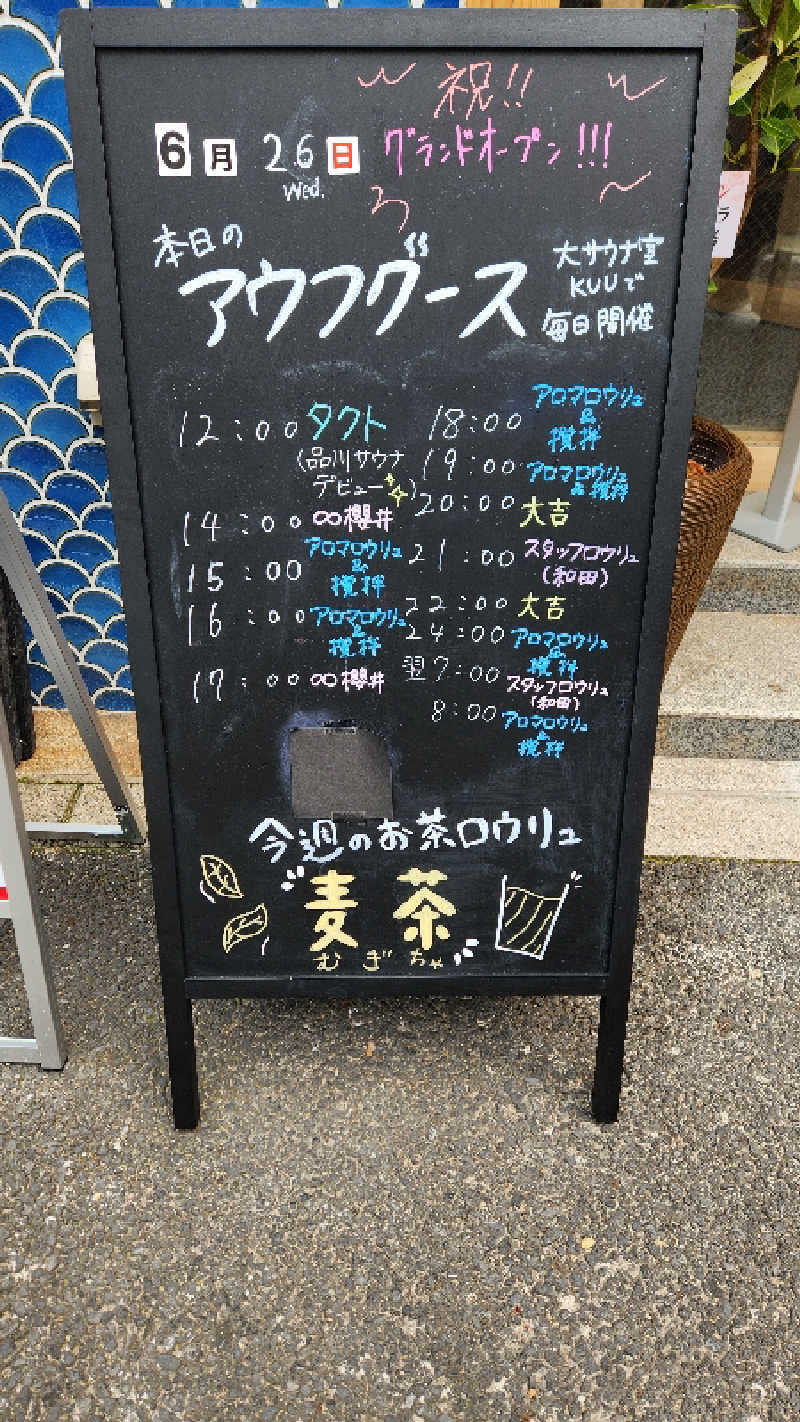 祝!!
6月 26日 グランドオープン!!!
Wed.
本日の
アウフグース
大サウナ室
KUUで
毎日開催
12:00 タクト
(品川サウナ
デビュー)
14:00 ∞櫻井
15:00 アロマロウリュ
&
攪拌
16:00 アロマロウリュ
&
攪拌
17:00 ∞櫻井
18:00 アロマロウリュ
&
攪拌
19:00 アロマロウリュ
&攪拌
20:00 大吉
21:00 スタッフロウリュ
(和田)
22:00 大吉
24:00 アロマロウリュ
&
攪拌
翌7:00 スタッフロウリュ
(和田)
8:00 アロマロウリュ
&
攪拌
今週のお茶ロウリュ
麦茶
むぎちゃ